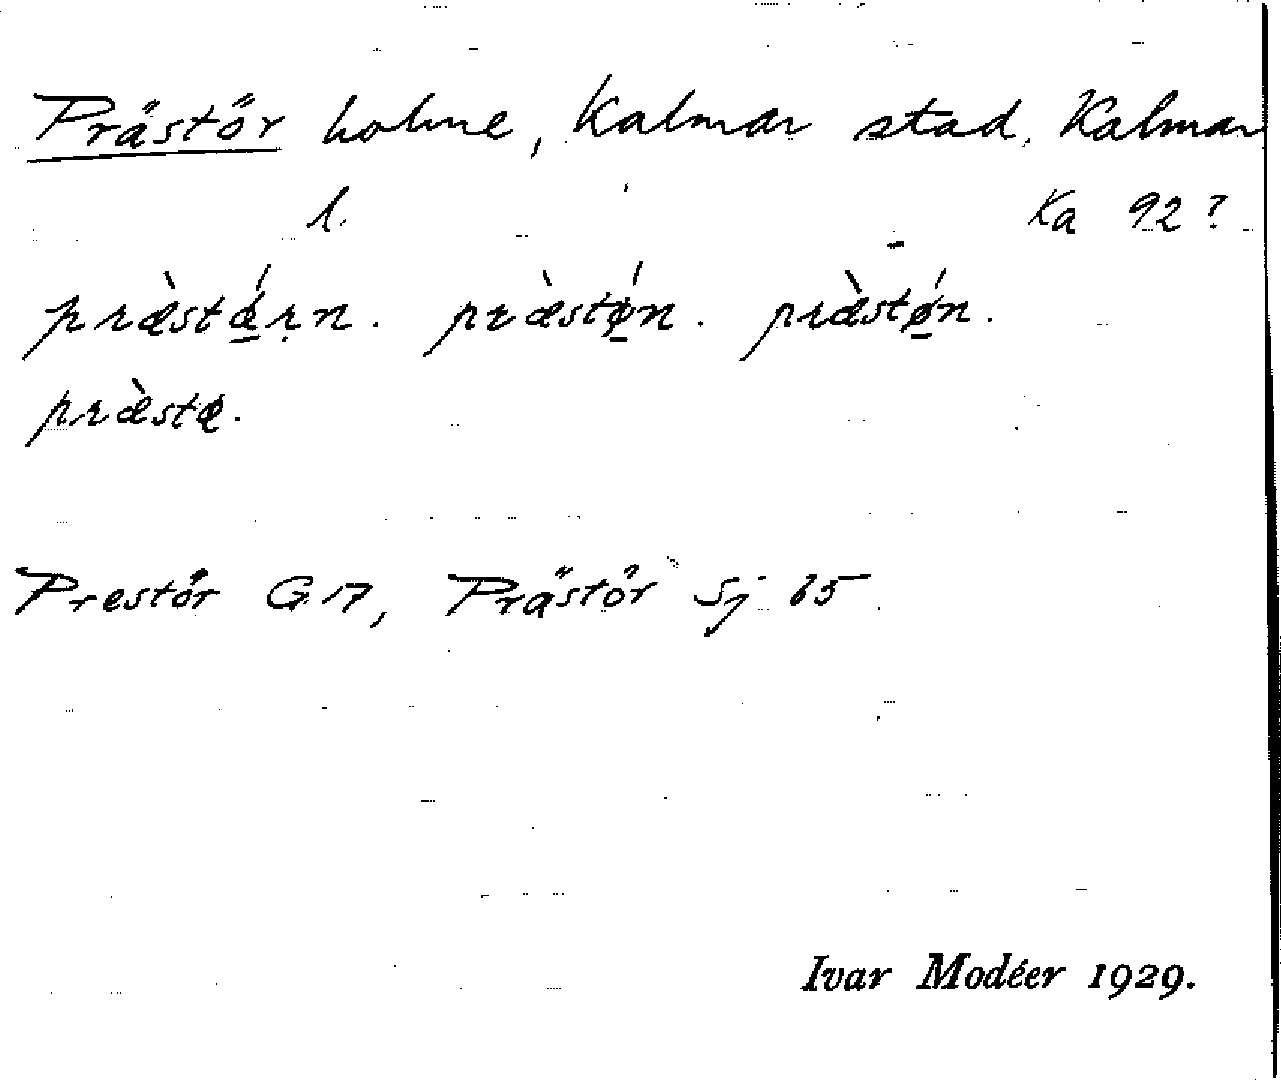 Prästör holme, Kalmar stad, Kalmar
l. Ka 92?
præ̀stǽ̱rṇ. præ̀stǿ̱n. præ̀stǿ̱n.
præ̀stæ.
Prestör G 17, Prästör Sj 65
Ivar Modéer 1929.